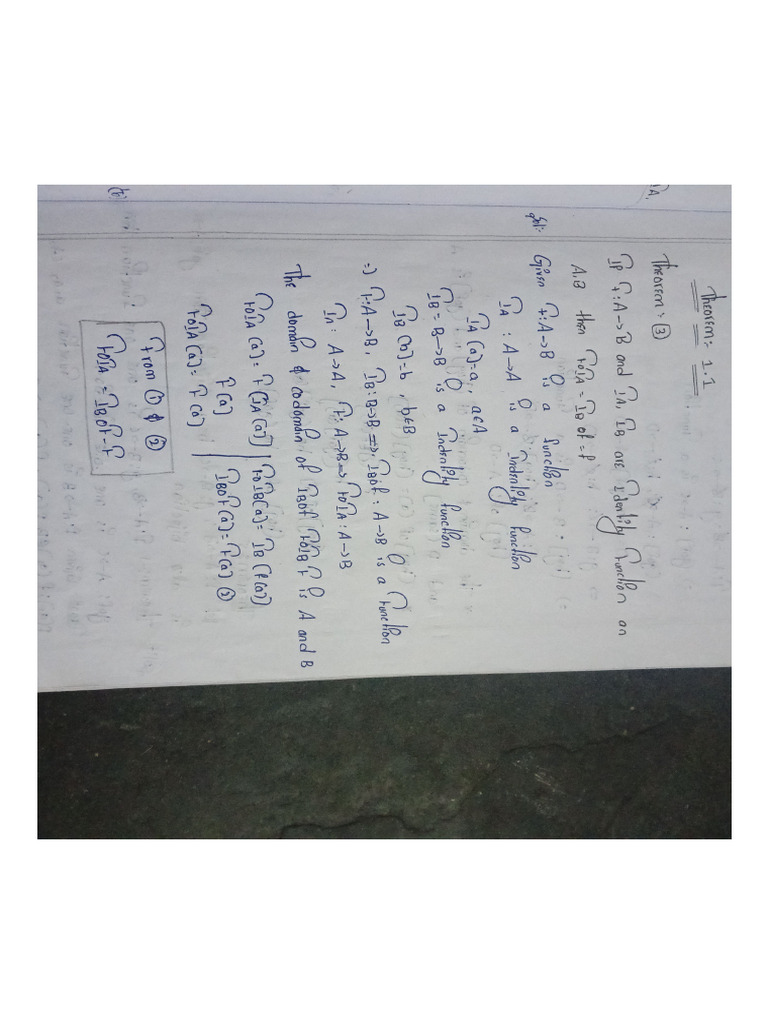 Theorem:- 1.1
Theorem:- 3
If f:A→B and IA, IB are Identity Function on
A,B then foIA = IB of = f
Sol:- Given f:A→B is a function
IA : A→A is a Indentity function
IA(a)=a, a∈A
IB = B→B is a Indentity function
IB(b)=b, b∈B
=) f:A→B, IB:B→B ⇒ IBof : A→B is a function
IA: A→A, f:A→B⇒ foIA: A→B
The domain & codomain of IBof foIB f is A and B
foIA (a) = f(IA(a)) | foIB(a) = IB(f(a))
f(a) | IBof(a) = f(a) ②
foIA(a) = f(a)
from ① & ②
foIA = IBof=f